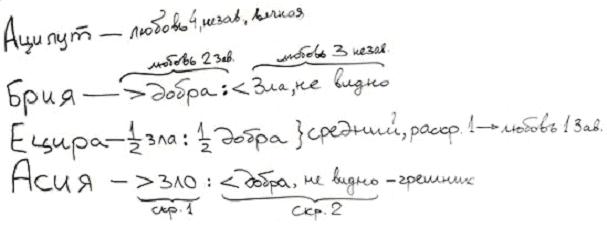 Ацилут — любовь 4, незав., вечная
любовь 2 зав. любовь 3 незав.
Брия — > добра : < зла, не видно
Ецира — 1/2 зла : 1/2 добра } средний, раскр. 1 → любовь 1 зав.
Асия — > зло : < добра, не видно - грешник
скр. 1 скр. 2